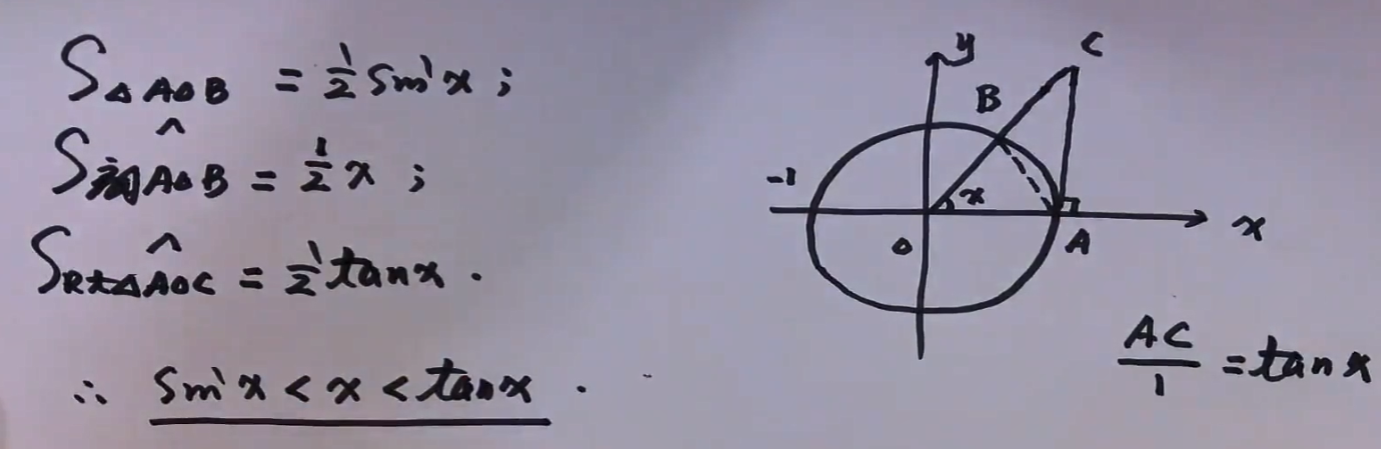 S△AOB = 1/2 sin x ;
∧
S扇AOB = 1/2 x ;
∧
SRt△AOC = 1/2 tan x .
∴ sin x < x < tan x .
y
C
B
-1
x
x
O
A
AC/1 = tan x